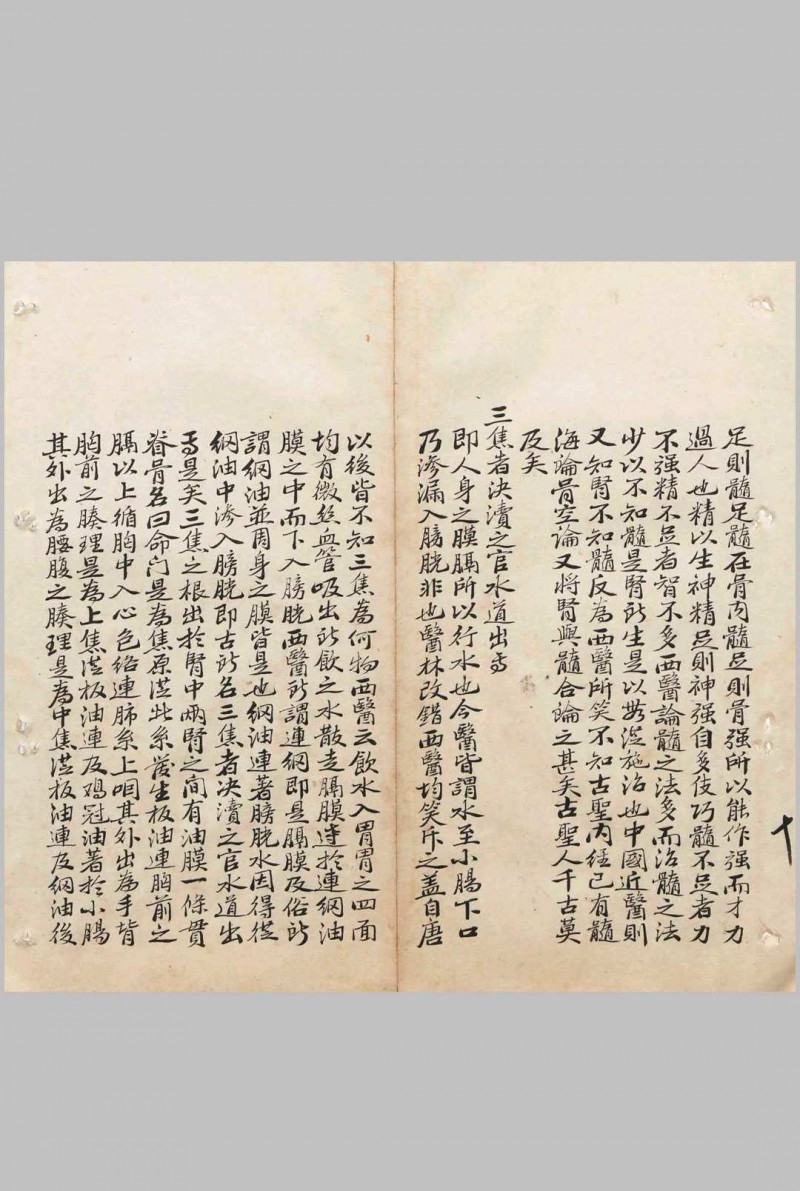 足則髓足髓在骨內髓足則骨强所以能作强而才力
過人也精以生神精足則神强自多伎巧髓不足者力
不强精不足者智不多西醫論髓之法多而治髓之法
少以不知髓是腎所生是以無從施治也中國近醫則
又知腎不知髓反為西醫所笑不知古聖內經已有髓
海論骨空論又將腎與髓合論之甚矣古聖人千古莫
及矣
三焦者決瀆之官水道出焉
即人身之膜膈所以行水也今醫皆謂水至小腸下口
乃滲漏入膀胱非也醫林改錯西醫均笑斥之盖自唐
十
以後皆不知三焦為何物西醫云飲水入胃胃之四面
均有微絲血管吸出所飲之水散走膈膜達於連網油
膜之中而下入膀胱西醫所謂連網即是膈膜及俗所
謂網油並周身之膜皆是也網油連著膀胱水因得從
網油中滲入膀胱即古所名三焦者決瀆之官水道出
焉是矣三焦之根出於腎中兩腎之間有油膜一條貫
脊骨名曰命門是為焦原從此系發生板油連胸前之
膈以上循胸中入心包絡連肺系上咽其外出為手背
胸前之腠理是為上焦從板油連及鸡冠油著於小腸
其外出為腰腹之腠理是為中焦從板油連及網油後